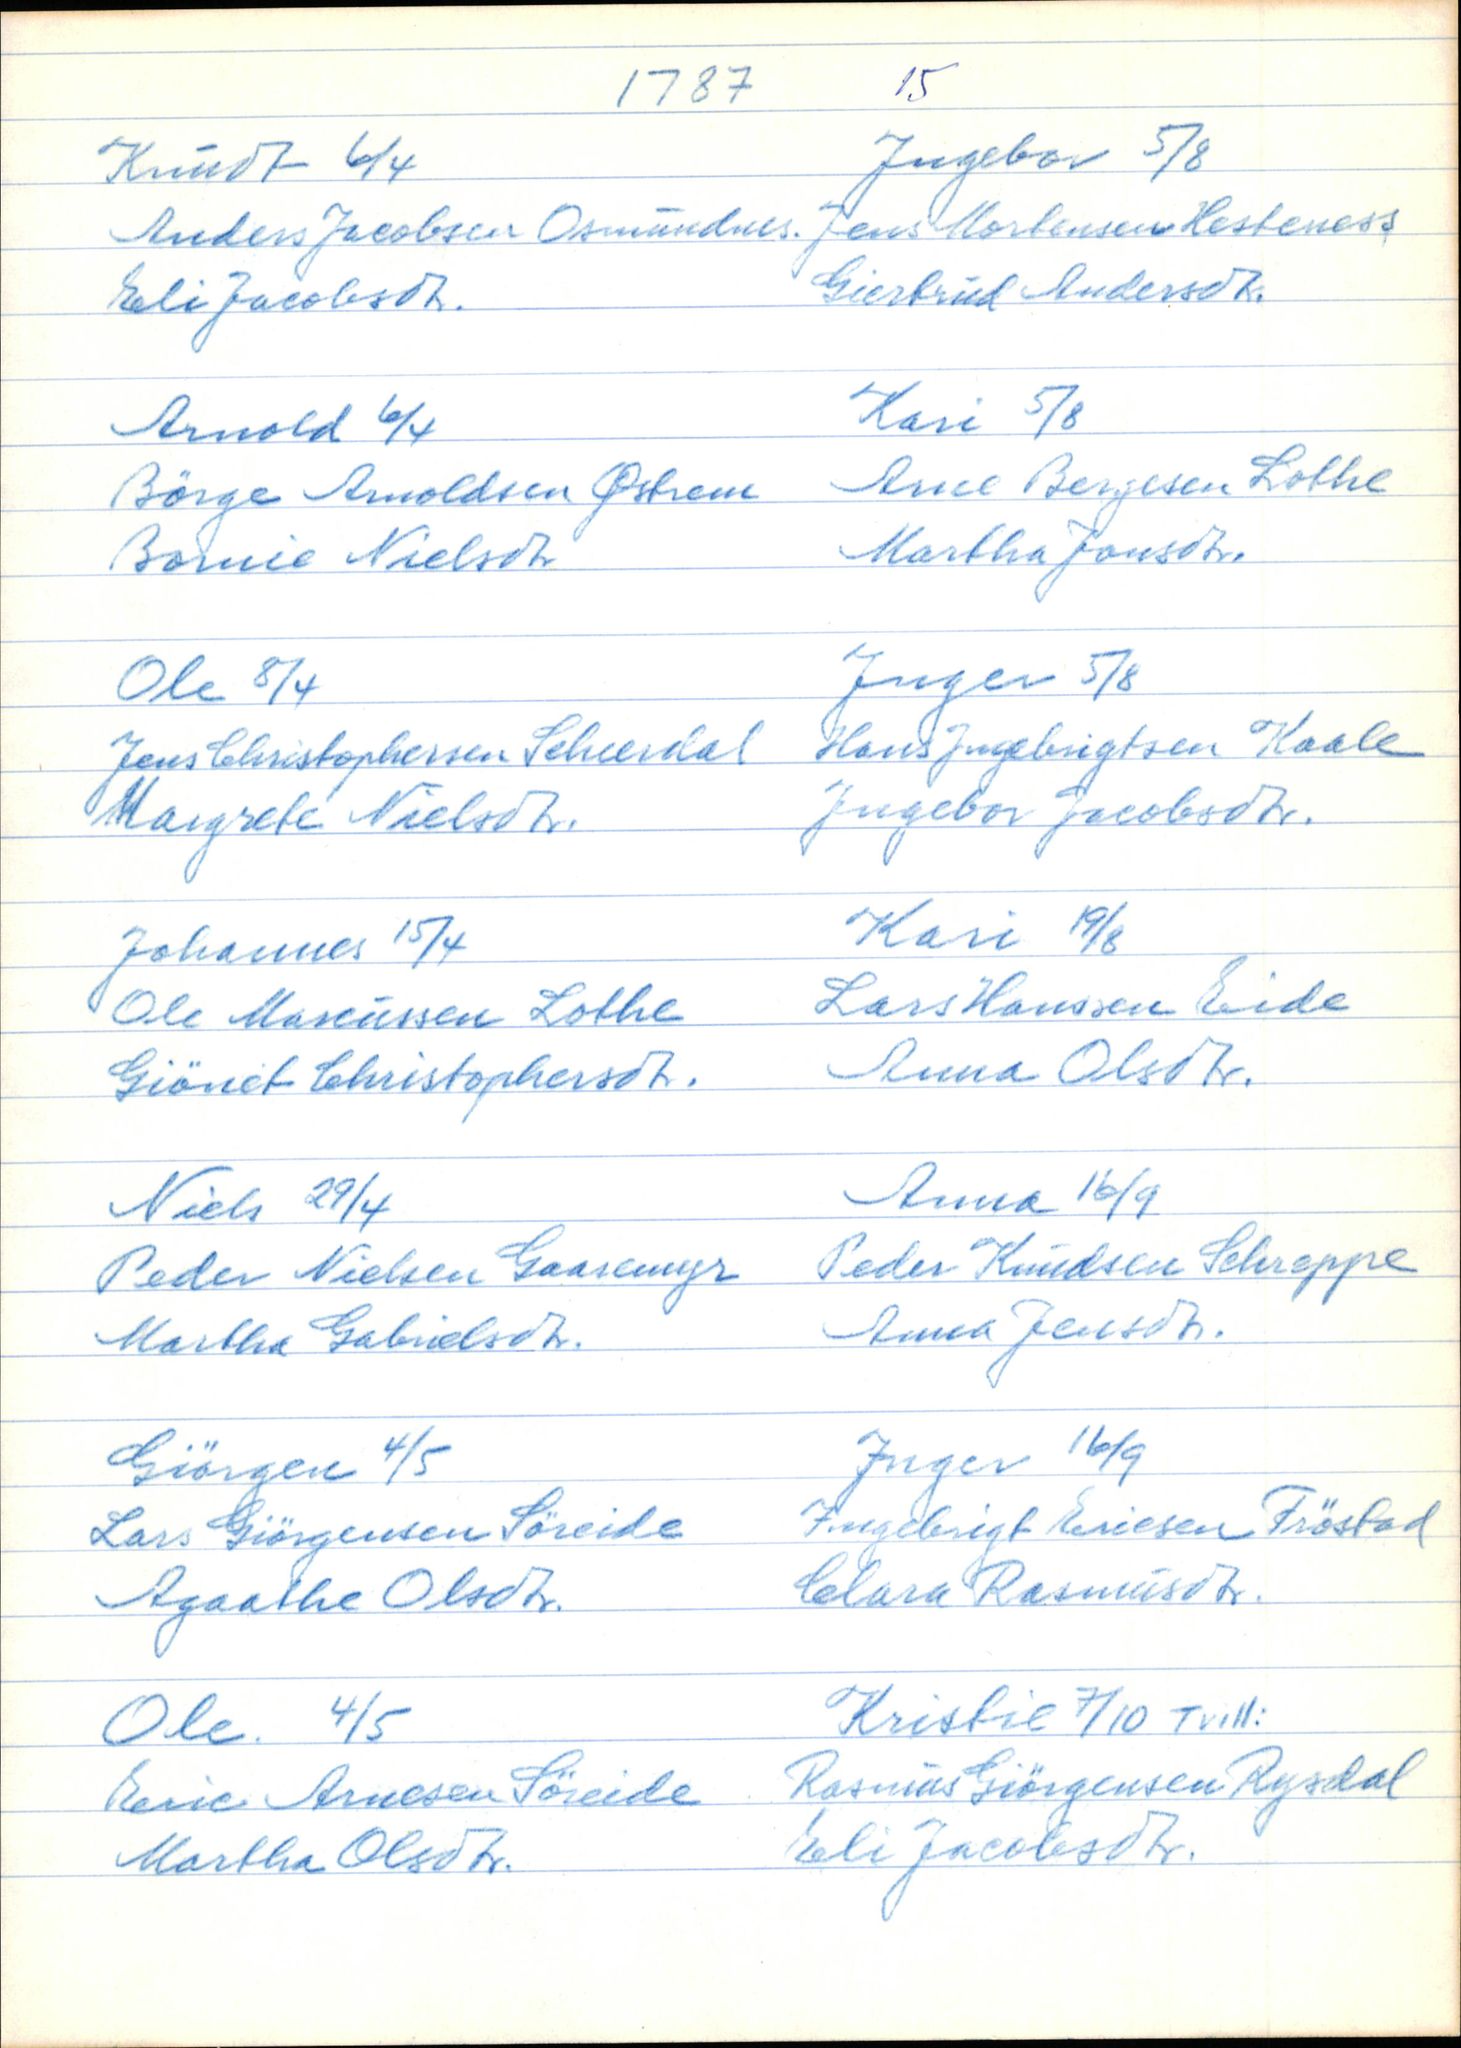 1787 15
Knudt 6/4
Anders Jacobsen Osmundnes.
Eli Jacobsdtr.
Arnold 6/4
Börge Arnoldsen Østrem
Bornie Nielsdtr
Ole 8/4
Jens Christophersen Scheerdal
Margrete Nielsdtr.
Johannes 15/4
Ole Marcussen Lothe
Giönet Christophersdtr.
Niels 29/4
Peder Nielsen Gaasemyr
Martha Gabrielsdtr.
Giörgen 4/5
Lars Giörgensen Söreide
Agaathe Olsdtr.
Ole. 4/5
Eric Arnesen Söreide
Martha Olsdtr.
Ingebor 5/8
Jens Mortensen Hesteness
Giertrud Andersdtr.
Kari 5/8
Arne Bergesen Lothe
Martha Jonsdtr.
Inger 5/8
Hans Ingebrigtsen Kaale
Ingebor Jacobsdtr.
Kari 19/8
Lars Hanssen Eide
Anna Olsdtr.
Anna 16/9
Peder Knudsen Schreppe
Anna Jensdtr.
Inger 16/9
Ingebrigt Ericsen Fröstad
Clara Rasmusdtr.
Kristie 7/10 Tvill:
Rasmus Giörgensen Rysdal
Eli Jacobsdtr.